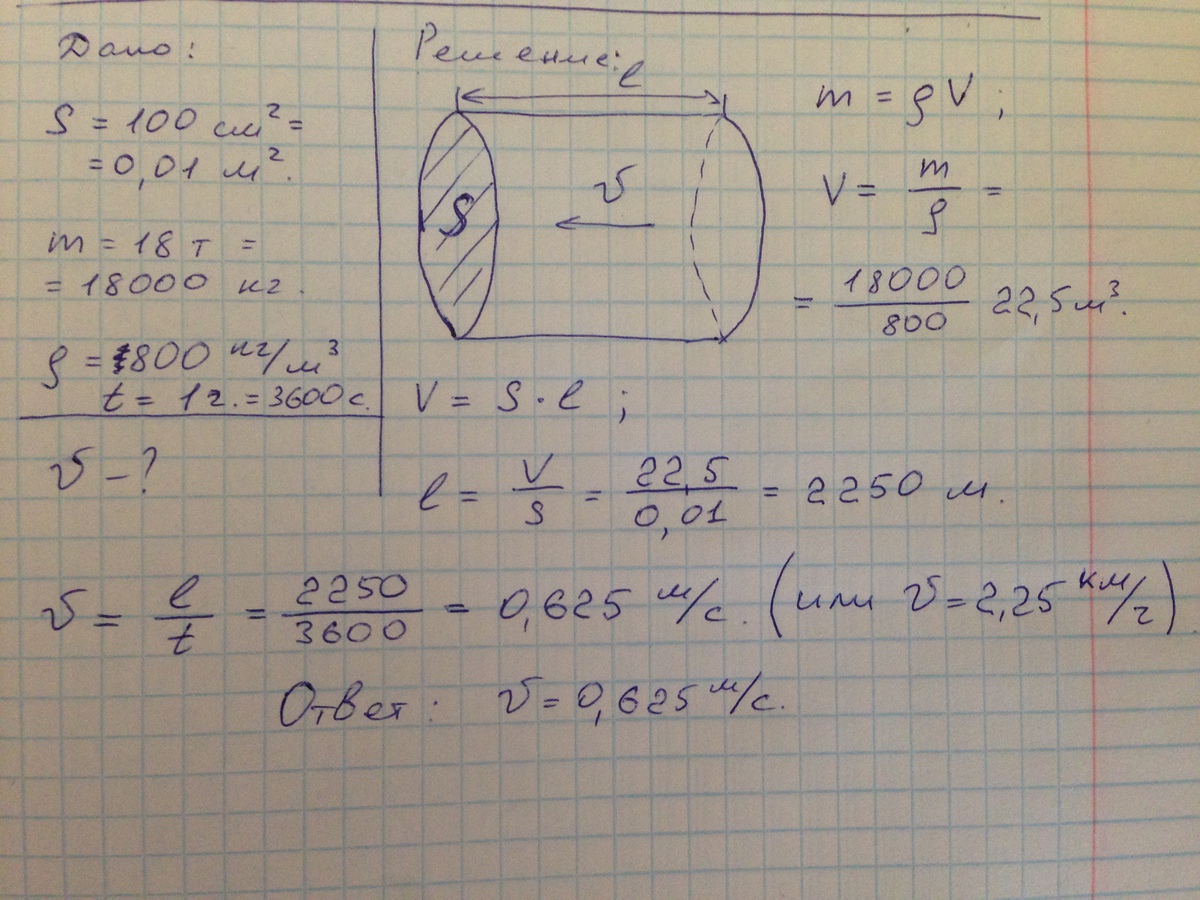 Дано:
S = 100 см² =
= 0,01 м².
m = 18 т =
= 18000 кг.
ρ = 800 кг/м³
t = 1 ч. = 3600 с.
υ – ?
Решение:
l
S
υ
m = ρV ;
V = m/ρ =
= 18000/800 22,5 м³.
V = S · l ;
l = V/S = 22,5/0,01 = 2250 м.
υ = l/t = 2250/3600 = 0,625 м/с. (или υ = 2,25 км/ч).
Ответ: υ = 0,625 м/с.